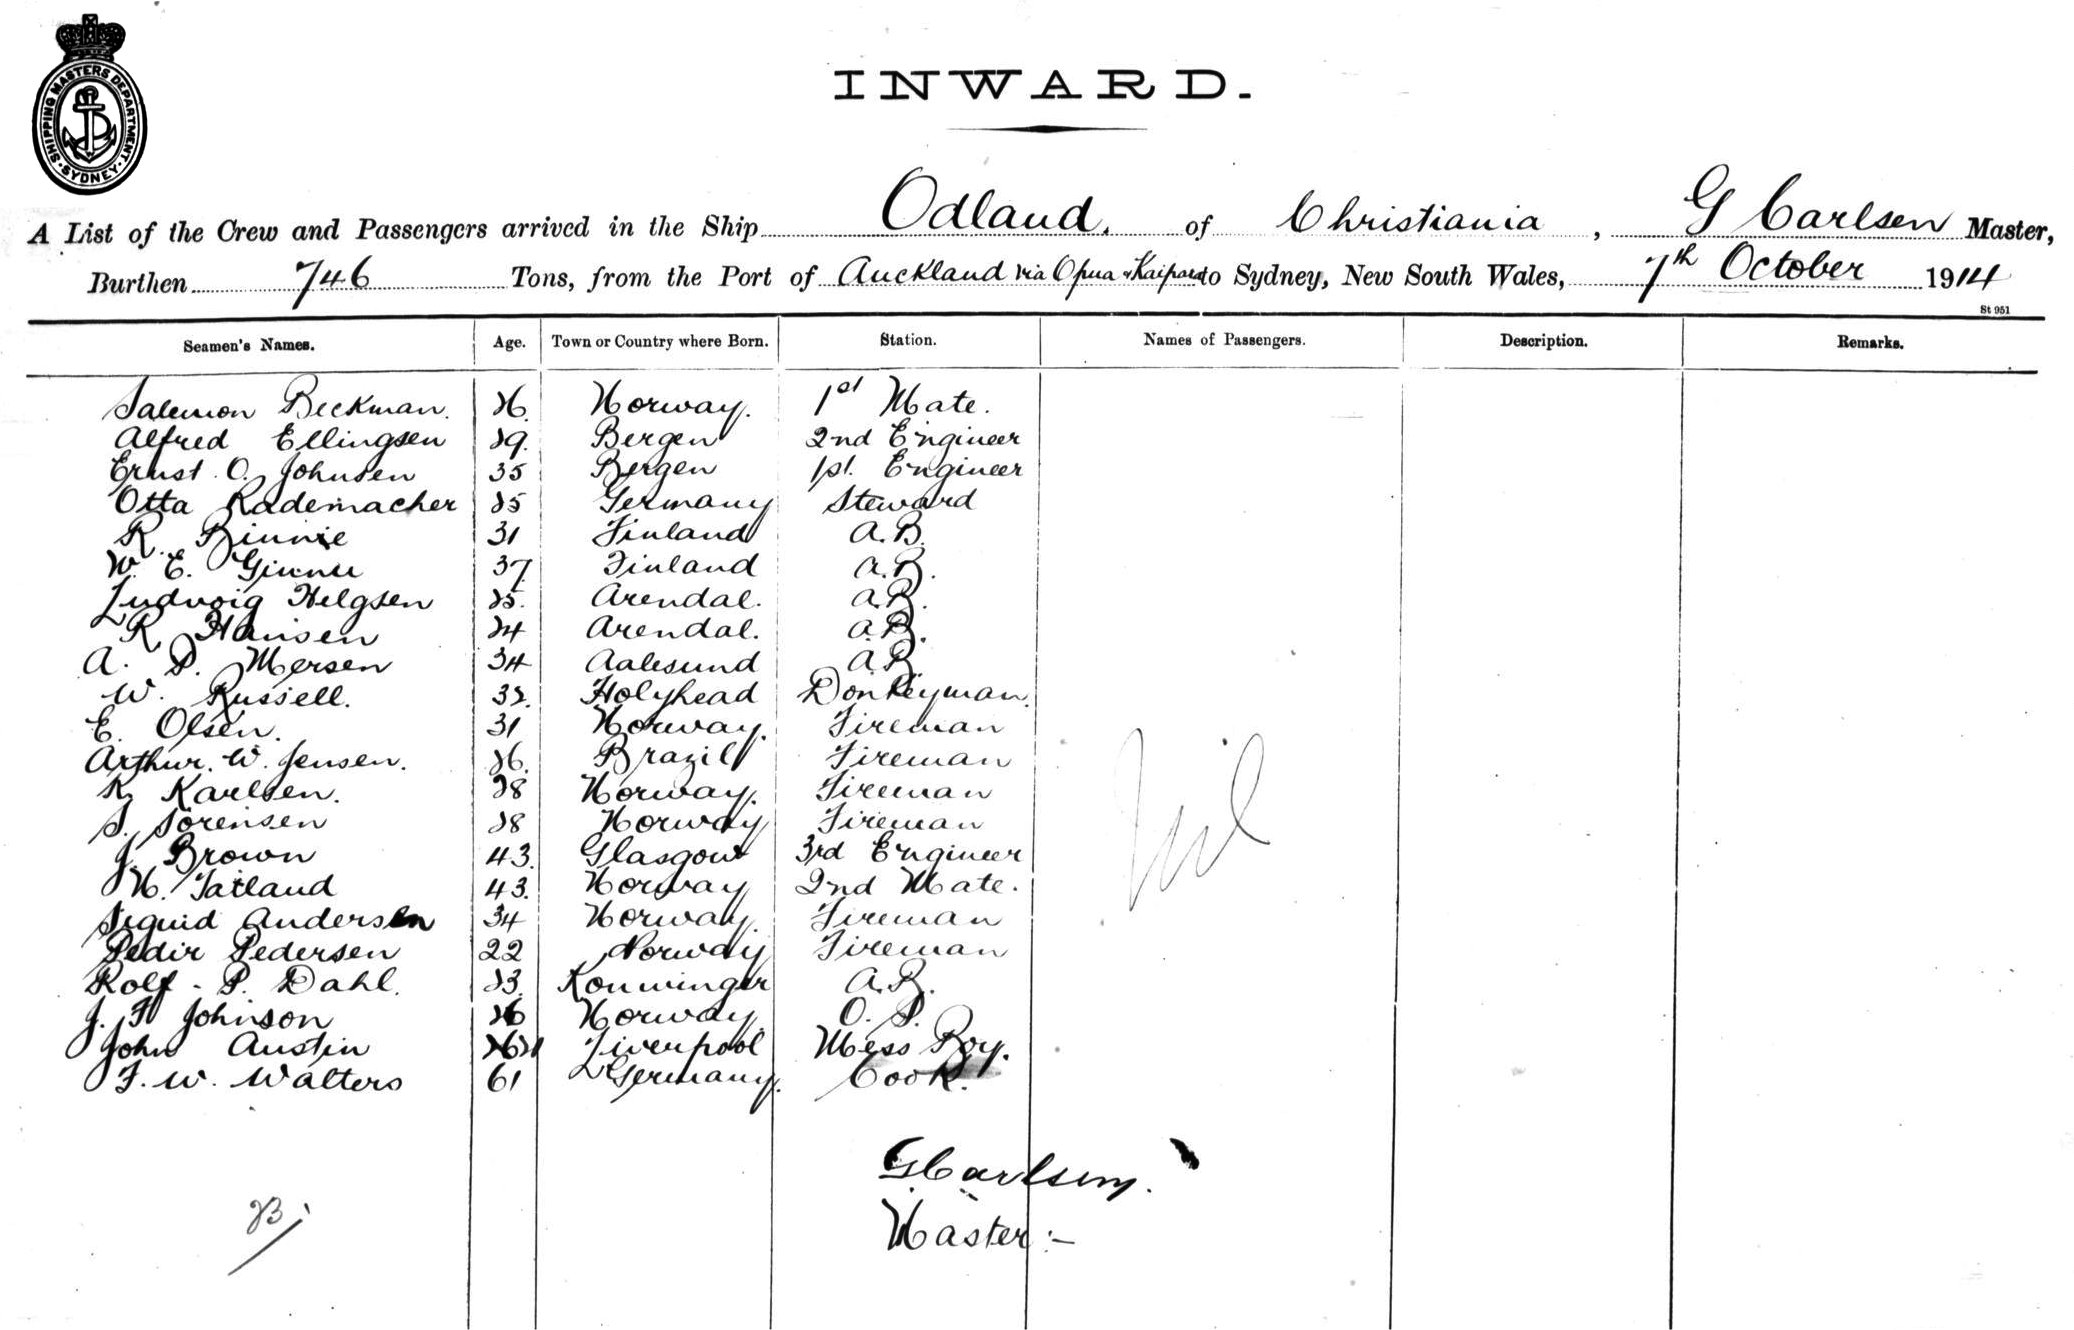 SHIPPING MASTERS DEPARTMENT. SYDNEY
INWARD.
A List of the Crew and Passengers arrived in the Ship Odland. of Christiania, G Carlsen Master,
Burthen 746 Tons, from the Port of Auckland via Opua & Kaipara to Sydney, New South Wales, 7th October 1914
St 951
Seamen's Names. Age. Town or Country where Born. Station. Names of Passengers. Description. Remarks.
Salemon Beckman. 26. Norway. 1st Mate.
Alfred Ellingsen 29. Bergen 2nd Engineer
Ernst. O. Johnsen 35 Bergen 1st. Engineer
Otta Rademacher 25 Germany Steward
R. Binnie 31 Finland A.B.
W. E. 37 Finland A.B.
Ludvoig Helgsen 25. Arendal. A.B.
R Hansen 24 Arendal. A.B.
A. P. Mersen 34 Aalesund A.B
W. Russell. 32. Holyhead Donkeyman.
E. Olsen. 31 Norway. Fireman
Arthur. W. Jensen. 26. Brazil Fireman
K Karlsen. 28 Norway. Fireman
S. Sorensen 28 Norway Fireman
J. Brown 43. Glasgow 3rd Engineer
N. Tatland 43. Norway 2nd Mate.
Sigurd Andersen 34 Norway. Fireman
Pedir Pedersen 22 Norway Fireman
Rolf - P. Dahl. 23. A.B.
J. F Johnson 26 Norway. O. S.
John Austin 21 Liverpool Mess Boy.
F. W. Walters 61 Germany. Cook.
Nil
G Carlsen.
Master :-
23